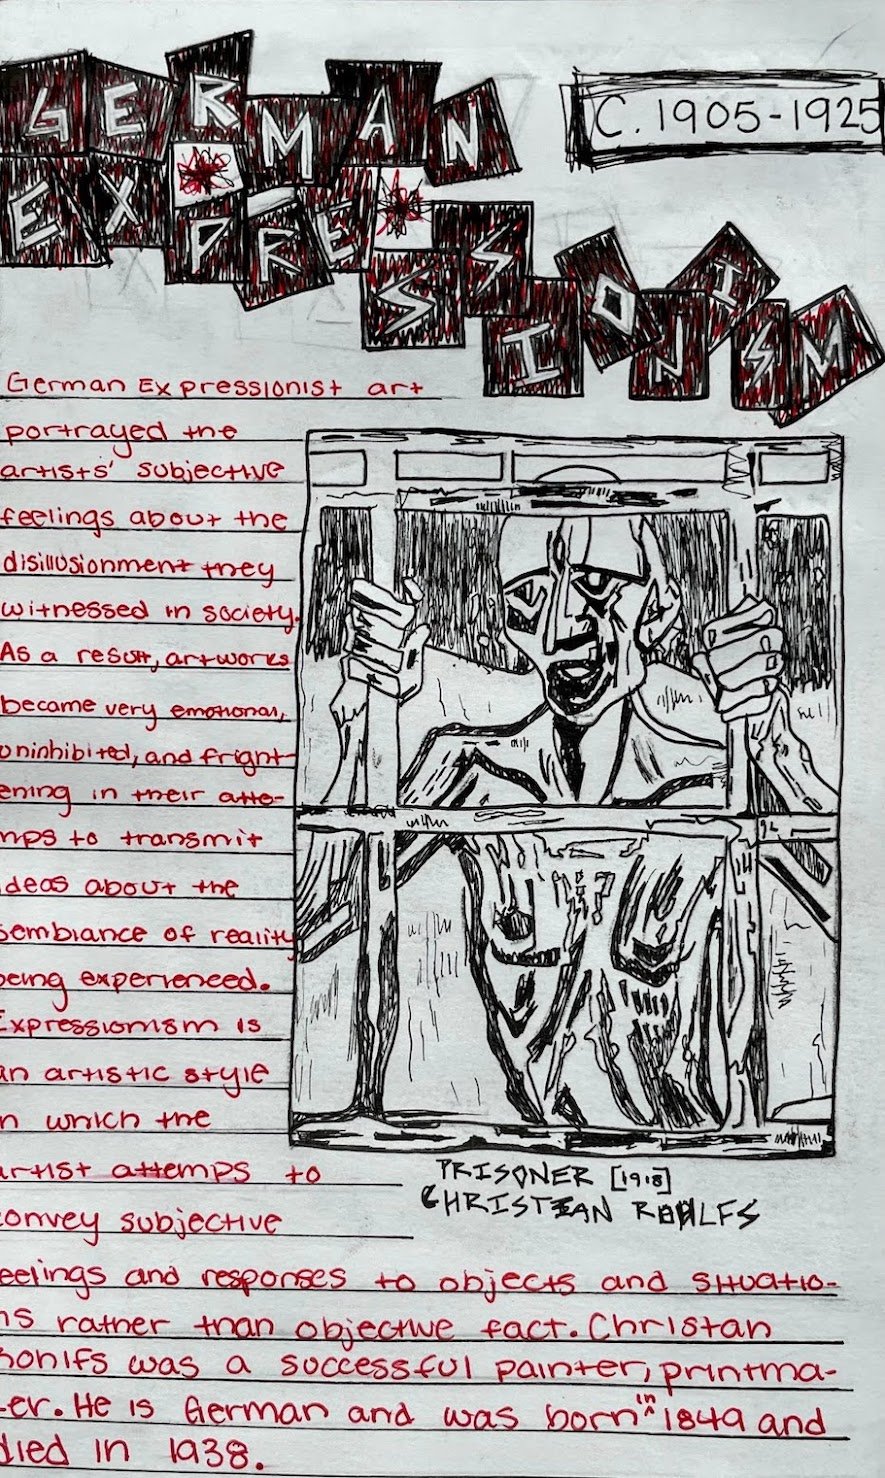 GERMAN
C. 1905-1925
EXPRESSIONISM
German Expressionist art
portrayed the
artists' subjective
feelings about the
disillusionment they
witnessed in society.
As a result, artworks
became very emotional,
uninhibited, and fright-
ening in their atte-
mps to transmit
ideas about the
semblance of reality
being experienced.
Expressionism is
an artistic style
in which the
artist attemps to
convey subjective
feelings and responses to objects and situatio-
ns rather than objective fact. Christan
was a successful painter, printma-
ker. He is German and was born in 1849 and
died in 1938.
PRISONER [1918]
CHRISTIAN ROHLFS